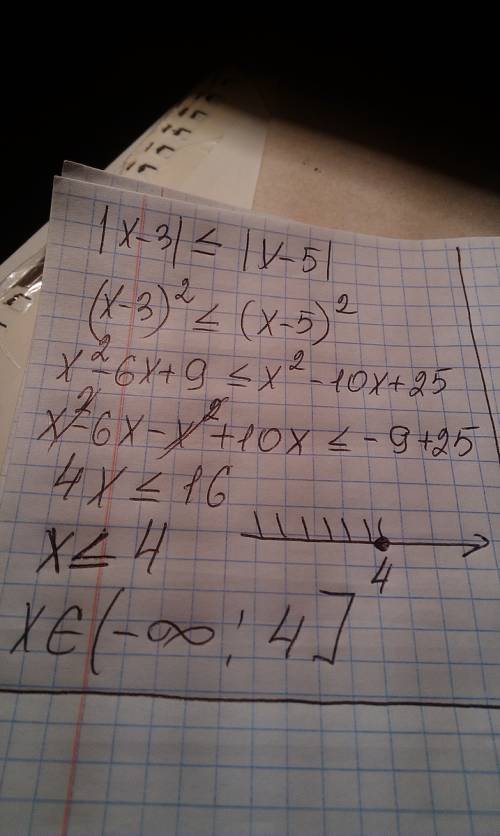 |x-3| ≤ |x-5|
(x-3)² ≤ (x-5)²
x²-6x+9 ≤ x²-10x+25
x²-6x-x²+10x ≤ -9+25
4x ≤ 16
x ≤ 4
4
x∈(-∞; 4]